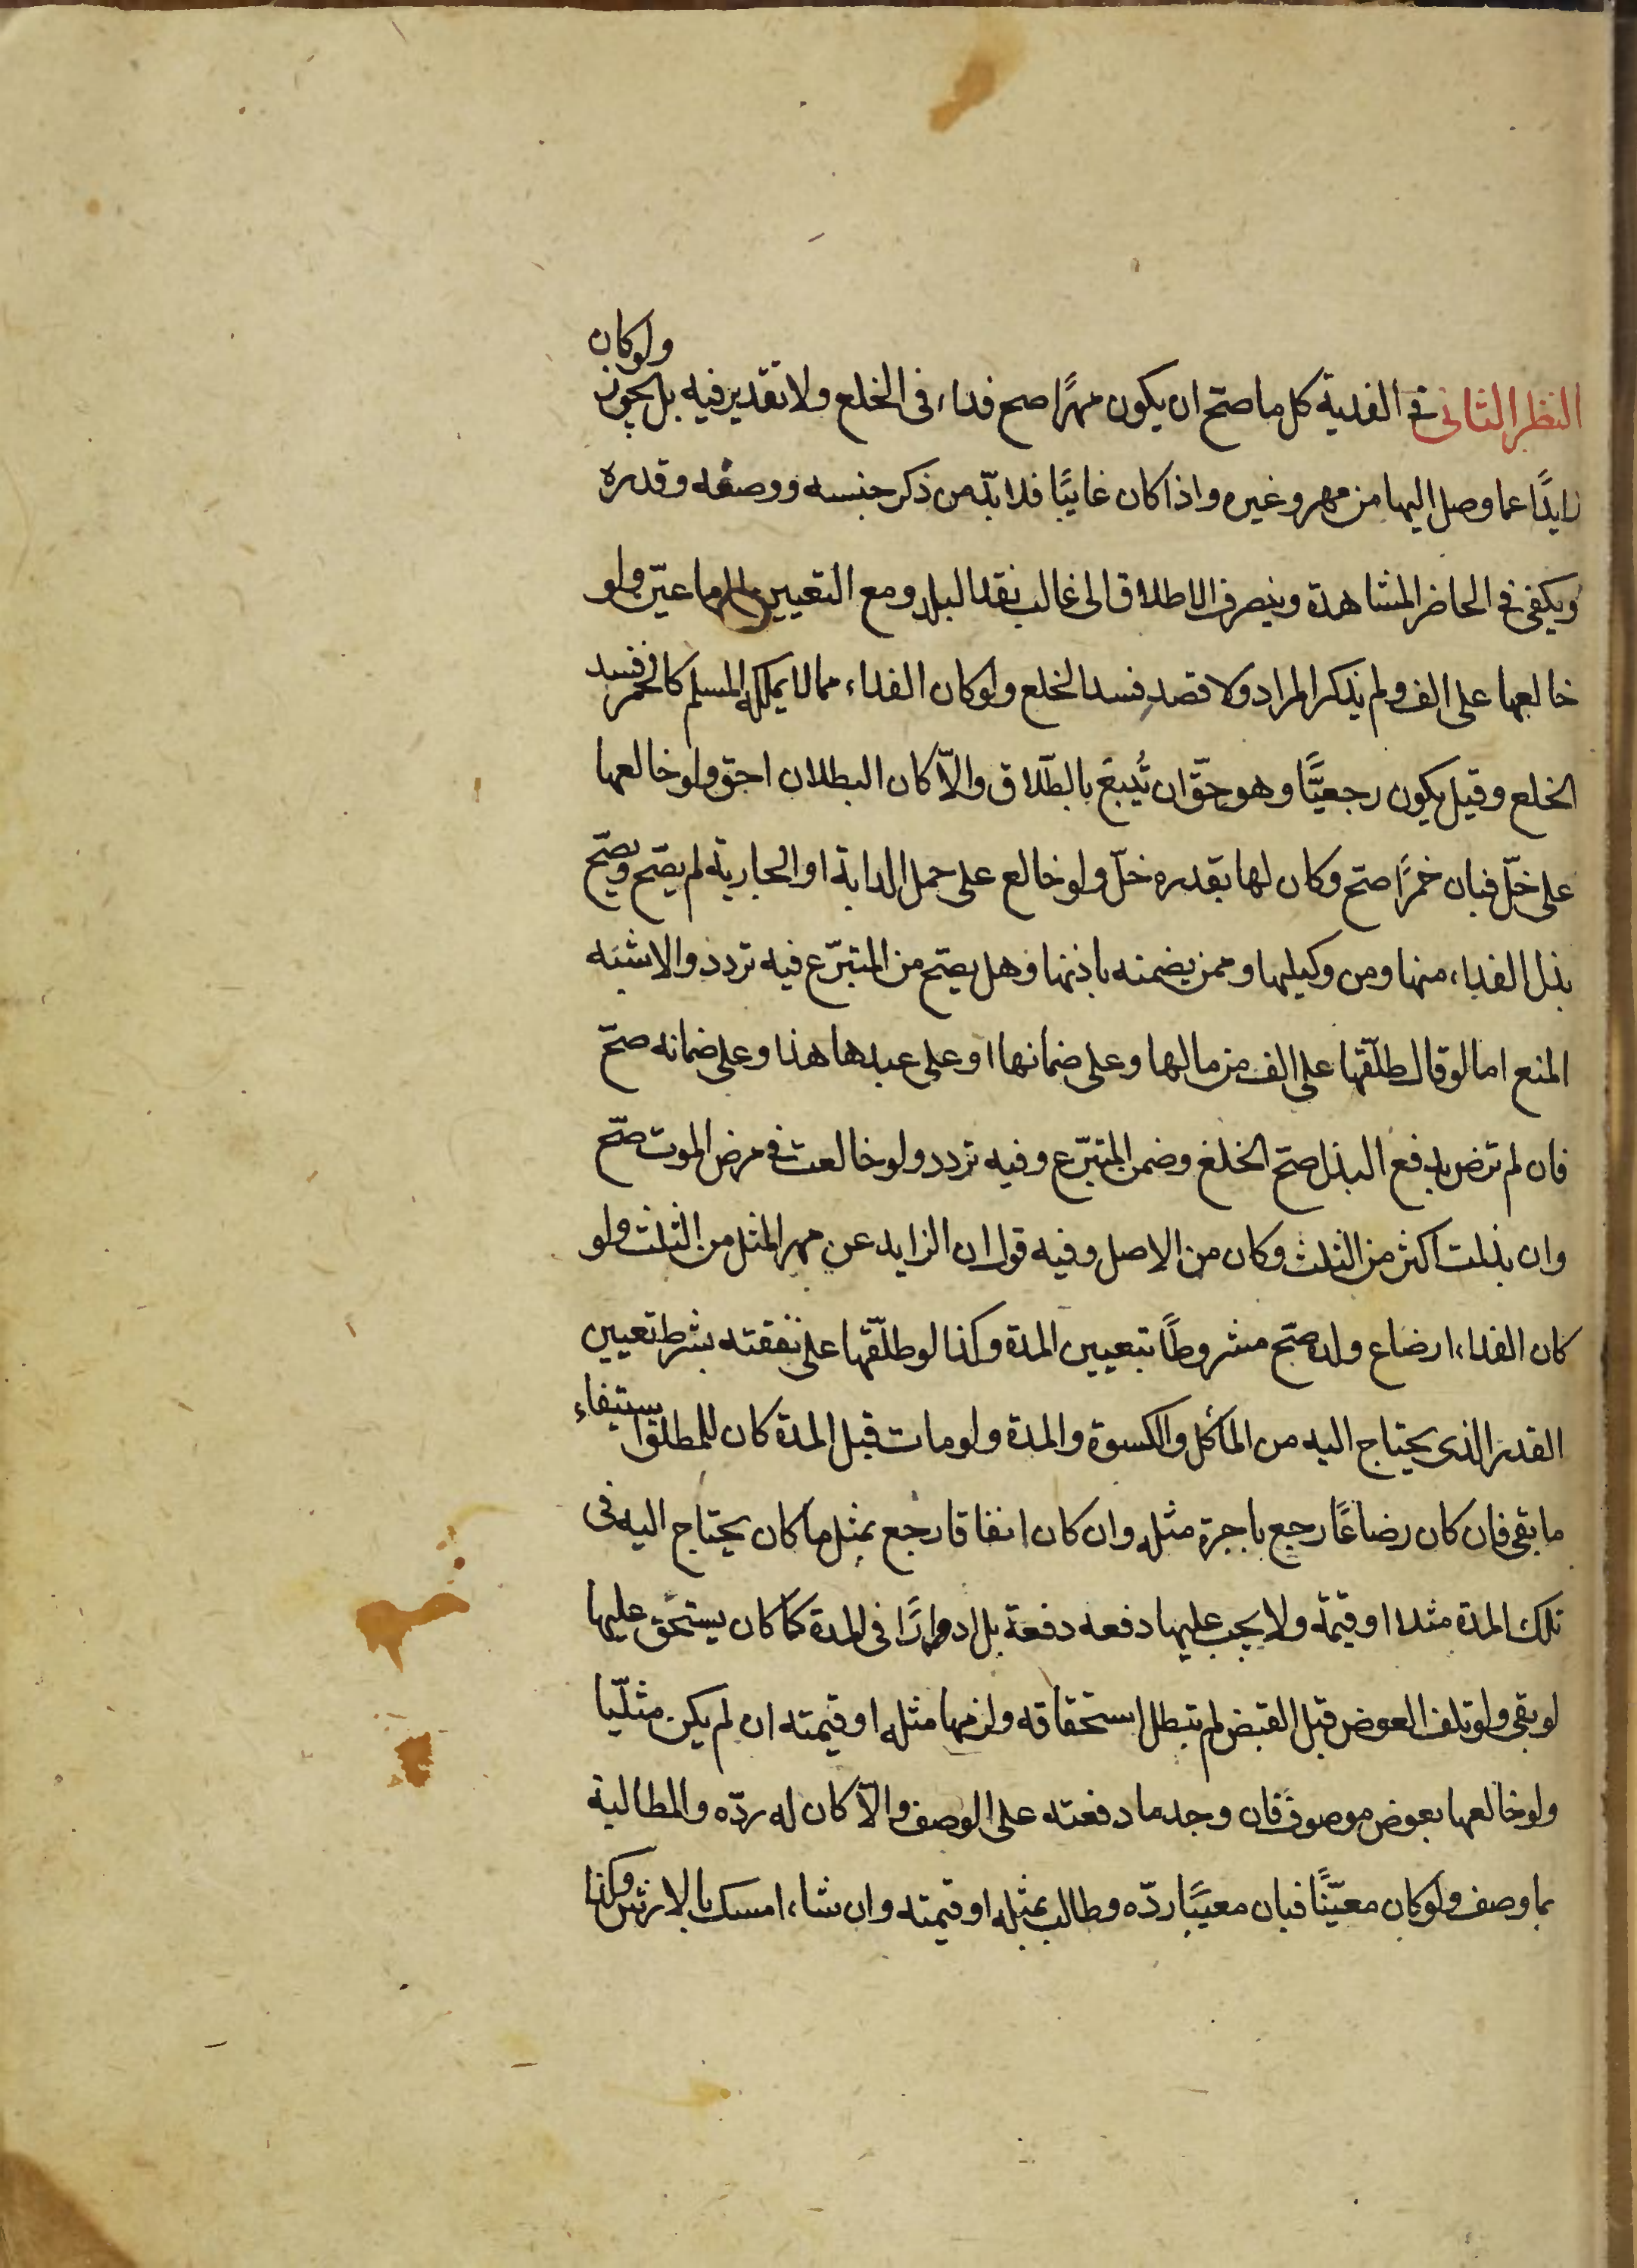 النظر الثانی فی الفدیة کل ما صحّ ان یکون مهرًا صح فداء فی الخلع ولا تقدیر فیه بل یجوز ولو کان
زایدًا عما وصل الیها من مهر وغیره واذا کان غایبًا فلا بدّ من ذکر جنسه ووصفه وقدره
ویکفی فی الحاضر المشاهدة وینصرف الاطلاق الی غالب نقد البلد ومع التعیین یلزم ما عیّن ولو
خالعها علی الف ولم یذکر المراد ولا قصد فسد الخلع ولو کان الفداء مما لا یملکه المسلم کالخمر فسد
الخلع وقیل یکون رجعیًّا وهو حقّ ان تُّبع بالطّلاق والّا کان البطلان احق ولو خالعها
علی خلّ فبان خمرًا صحّ وکان لها بقدره خلّ ولو خالع علی حمل الدابة او الجاریة لم یصّح ویصّح
بذل الفداء منها ومن وکیلها وممن یضمنه باذنها وهل یصّح من المتبرّع فیه تردد والاشبَه
المنع اما لو قال طلّقها علی الف من مالها وعلی ضمانها او علی عبدها هذا وعلی ضمانه صحّ
فان لم ترض بدفع البذل صحّ الخلع وضمن المتبرّع وفیه تردد ولو خالعت فی مرض الموت صحّ
وان بذلت اکثر من الثلث وکان من الاصل وفیه قول ان الزاید عن مهر المثل من الثلث ولو
کان الفداء ارضاع ولده صحّ مشروطًا بتعیین المدة وکذا لو طلّقها علی نفقته بشرط تعیین
القدر الذی یحتاج الیه من المأکل والکسوة والمدة ولو مات قبل المدة کان للمطلق استیفاء
ما بقی فان کان رضاعًا رجع باجرة مثله وان کان انفاقا رجع بمثل ما کان یحتاج الیه فی
تلک المدة مثلا او قیمة ولا یجب علیها دفعه دفعة بل ادوارًا فی المدة کما کان یستحق علیها
لو بقی ولو تلف العوض قبل القبض لم یبطل استحقاقه ولزمها مثله او قیمته ان لم یکن مثلّیا
ولو خالعها بعوض موصوف فان وجد ما دفعته علی الوصف والّا کان له ردّه والمطالبة
بما وصف ولو کان معیّنًا فبان معیبًا ردّه وطالب بمثله او قیمته وان شاء امسک بالارش وکذا